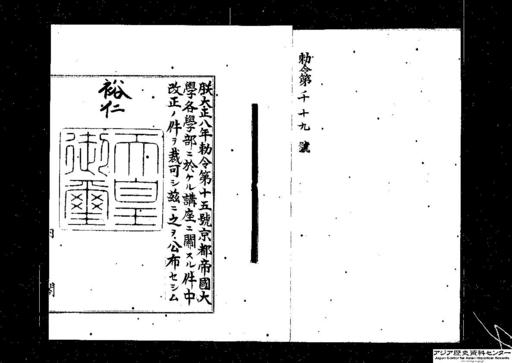 勅令第千十九號
朕大正八年勅令第十五號京都帝國大
學各學部ニ於ケル講座ニ關スル件中
改正ノ件ヲ裁可シ茲ニ之ヲ公布セシム
裕仁
天皇
御璽
内閣
アジア歴史資料センター
Japan Center for Asian Historical Records